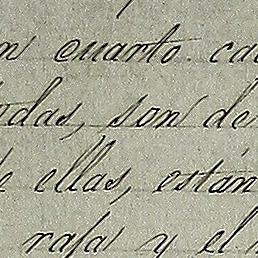 n cuarto. ca
odas, son de
e ellas, están
rasa y el